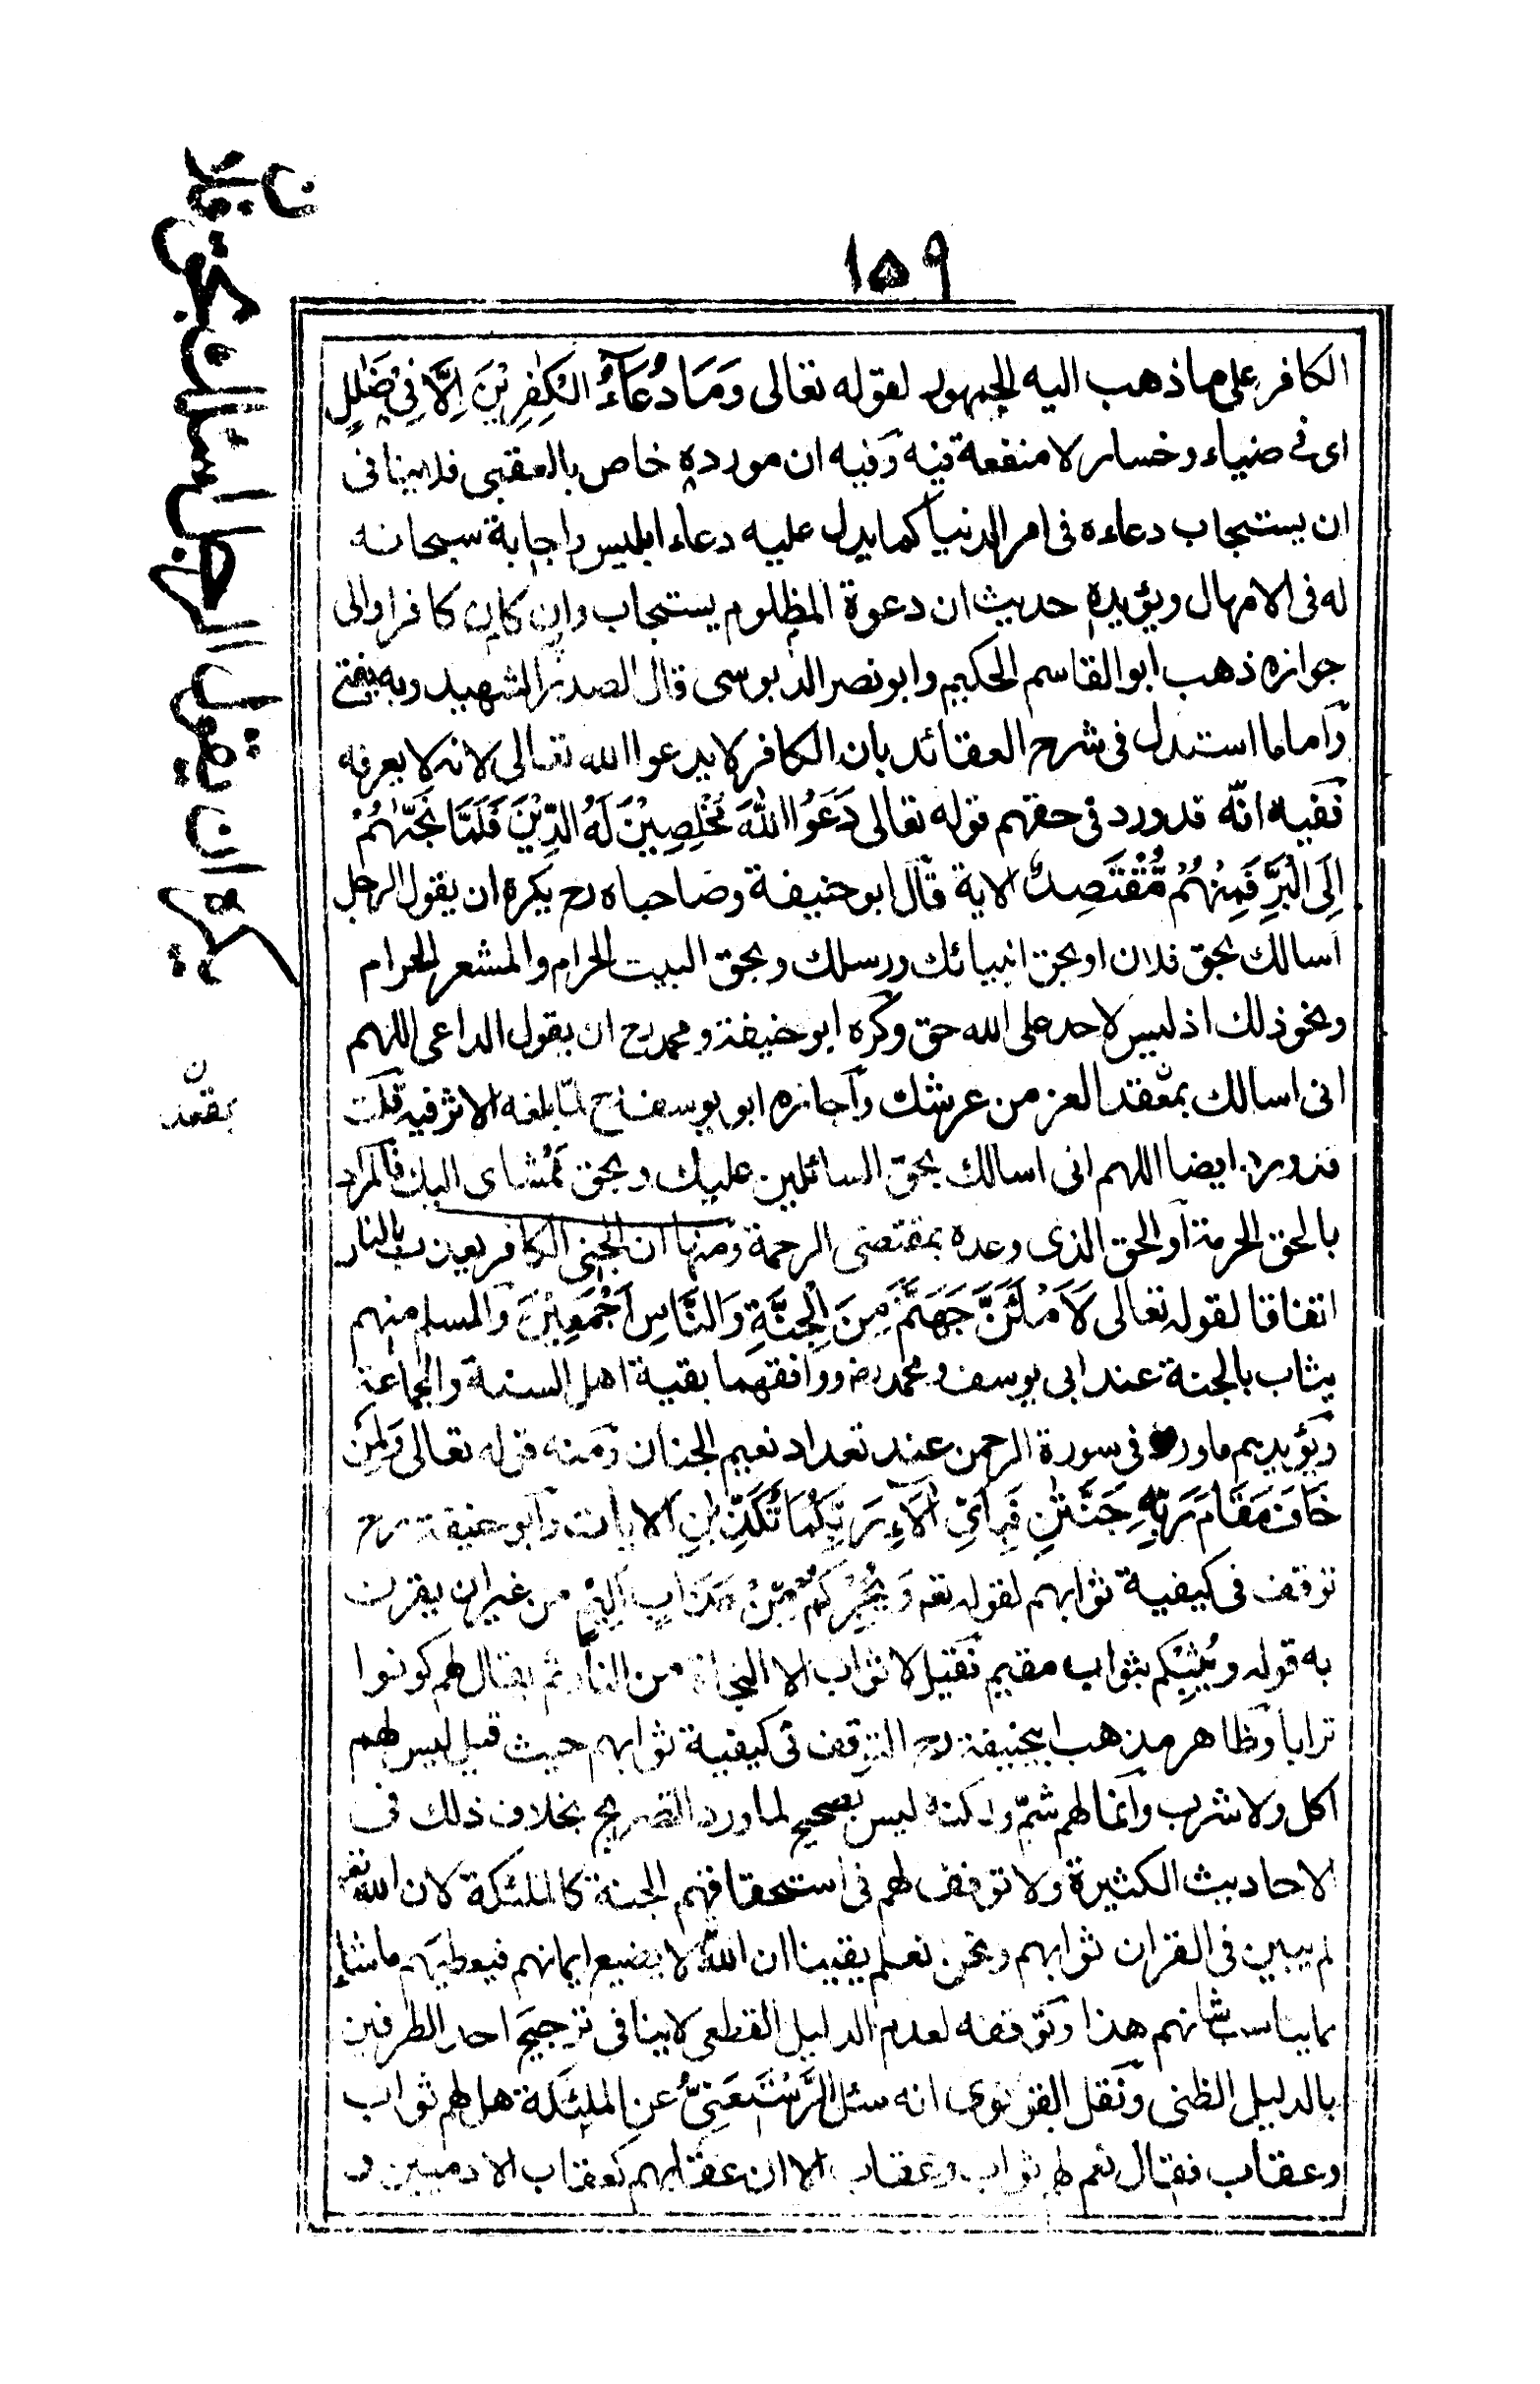 ١٥٩
الكافر على ما ذهب اليه الجمهور لقوله تعالى وَمَا دُعَآءُ الْكٰفِرِيْنَ اِلَّا فِيْ ضَلٰلٍ
اى فى ضياع وخسار لا منفعة فيه وفيه ان مورده خاص بالعقبى فلا ينافى
ان يستجاب دعاءه فى امر الدنيا كما يدل عليه دعاء ابليس واجابة سبحانه
له فى الامهال ويؤيده حديث ان دعوة المظلوم يستجاب وان كان كافرا والى
جوازه ذهب ابو القاسم الحكيم وابو نصر الدبوسى قال الصدر الشهيد وبه يفتى
وأما ما استدل فى شرح العقائد بان الكافر لا يدعوا الله تعالى لانه لا يعرفه
ففيه انّه قد ورد فى حقهم قوله تعالى دَعَوُا اللّٰهَ مُخْلِصِيْنَ لَهُ الدِّيْنَ فَلَمَّا نَجّٰىهُمْ
اِلَى الْبَرِّ فَمِنْهُمْ مُّقْتَصِدٌ الاية قال ابو حنيفة وصاحباه رح يكره ان يقول الرجل
اسالك بحق فلان او بحق انبيائك ورسلك وبحق البيت الحرام والمشعر الحرام
ونحو ذلك اذ ليس لاحد على الله حق وكره ابو حنيفة ومحمد رح ان يقول الداعى اللهم
انى اسالك بمعقد العز من عرشك وأجازه ابو يوسف رح لمّا بلغه الاثر فيه قلت
قد ورد ايضا اللهم انى اسالك بحق السائلين عليك وبحق مَمْشاى اليك فالمراد
بالحق الحرمة او الحق الذى وعده بمقتضى الرحمة ومنها ان الجنى الكافر يعذب بالنار
اتفاقا لقوله تعالى لَاَمْلَئَنَّ جَهَنَّمَ مِنَ الْجِنَّةِ وَالنَّاسِ اَجْمَعِيْنَ والمسلم منهم
يثاب بالجنة عند ابى يوسف ومحمد رح ووافقهما بقية اهل السنة والجماعة
ويؤيدهم ما ورد فى سورة الرحمن عند تعداد نعيم الجنان ومنه قوله تعالى وَلِمَنْ
خَافَ مَقَامَ رَبِّهٖ جَنَّتٰنِ فَبِاَيِّ اٰلَآءِ رَبِّكُمَا تُكَذِّبٰنِ الايات وأبو حنيفة رح
توقف فى كيفية ثوابهم لقوله تعه وَيُجِرْكُمْ مِّنْ عَذَابٍ اَلِيْمٍ من غير ان يقرن
به قوله ويُثِبْكم بثواب مقيم فقيل لا ثواب الا النجاة من النار ثم يقال لهم كونوا
ترابا وظاهر مذهب ابيحنيفة رح التوقف فى كيفية ثوابهم حيث قيل ليس لهم
اكل ولا شرب وانما لهم شمّ ولكنه ليس بصحيح لما ورد التصريح بخلاف ذلك فى
الاحاديث الكثيرة ولا توقف لهم فى استحقاقهم الجنة كالملئكة لان الله تعه
لم يبين فى القران ثوابهم ونحن نعلم يقينا ان الله لا يضيع ايمانهم فيعطيهم ما شاء
مما يناسب شانهم هذا وتوقفه لعدم الدليل القطعى لا ينافى ترجيح احد الطرفين
بالدليل الظنى ونقل القونوى انه سئل الرُّسْتَغْفَنِىُّ عن الملئكة هل لهم ثواب
وعقاب فقال نعم لهم ثواب وعقاب الا ان عقابهم كعقاب الادميين و
يكره ان يقول الرجل اسئلك بحق فلان
بمقعد
ن